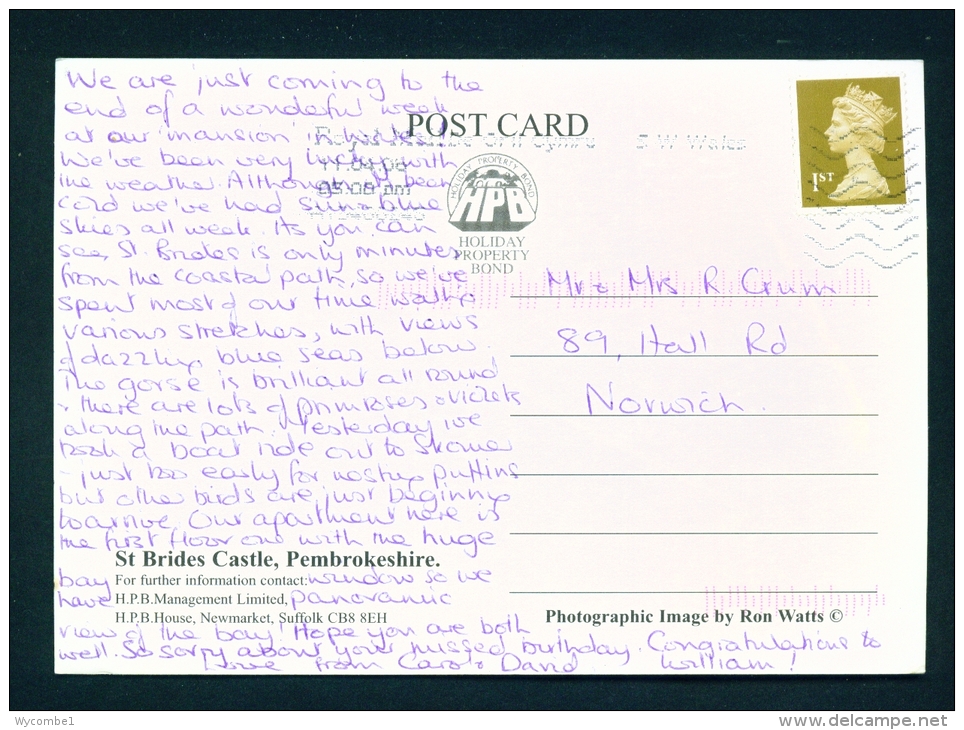 We are just coming to the
end of a wonderful week
at our mansion in Wales!
We've been very lucky with
the weather. Although it's been
cold we've had sun & blue
skies all week. As you can
see, St. Brides is only minutes
from the coastal path, so we've
spent most of our time walking
various stretches, with views
of dazzling blue seas below.
The gorse is brilliant all round
& there are lots of primroses & violets
along the path. Yesterday we
took a boat ride out to Skomer
- just too early for nesting puffins
but other birds are just beginning
to arrive. Our apartment here is
the first floor one with the huge
bay window so we
have panoramic
view of the bay! Hope you are both
well. So sorry about your missed birthday. Congratulations to
William!
Love from Carol & David
POST CARD
S W Wales
11.04.06
05.08 pm
HOLIDAY PROPERTY BOND
HPB
HOLIDAY
PROPERTY
BOND
1ST
Mr & Mrs R Crum
89, Hall Rd
Norwich.
St Brides Castle, Pembrokeshire.
For further information contact:
H.P.B.Management Limited,
H.P.B.House, Newmarket, Suffolk CB8 8EH
Photographic Image by Ron Watts ©
Wycombe1
www.delcampe.net